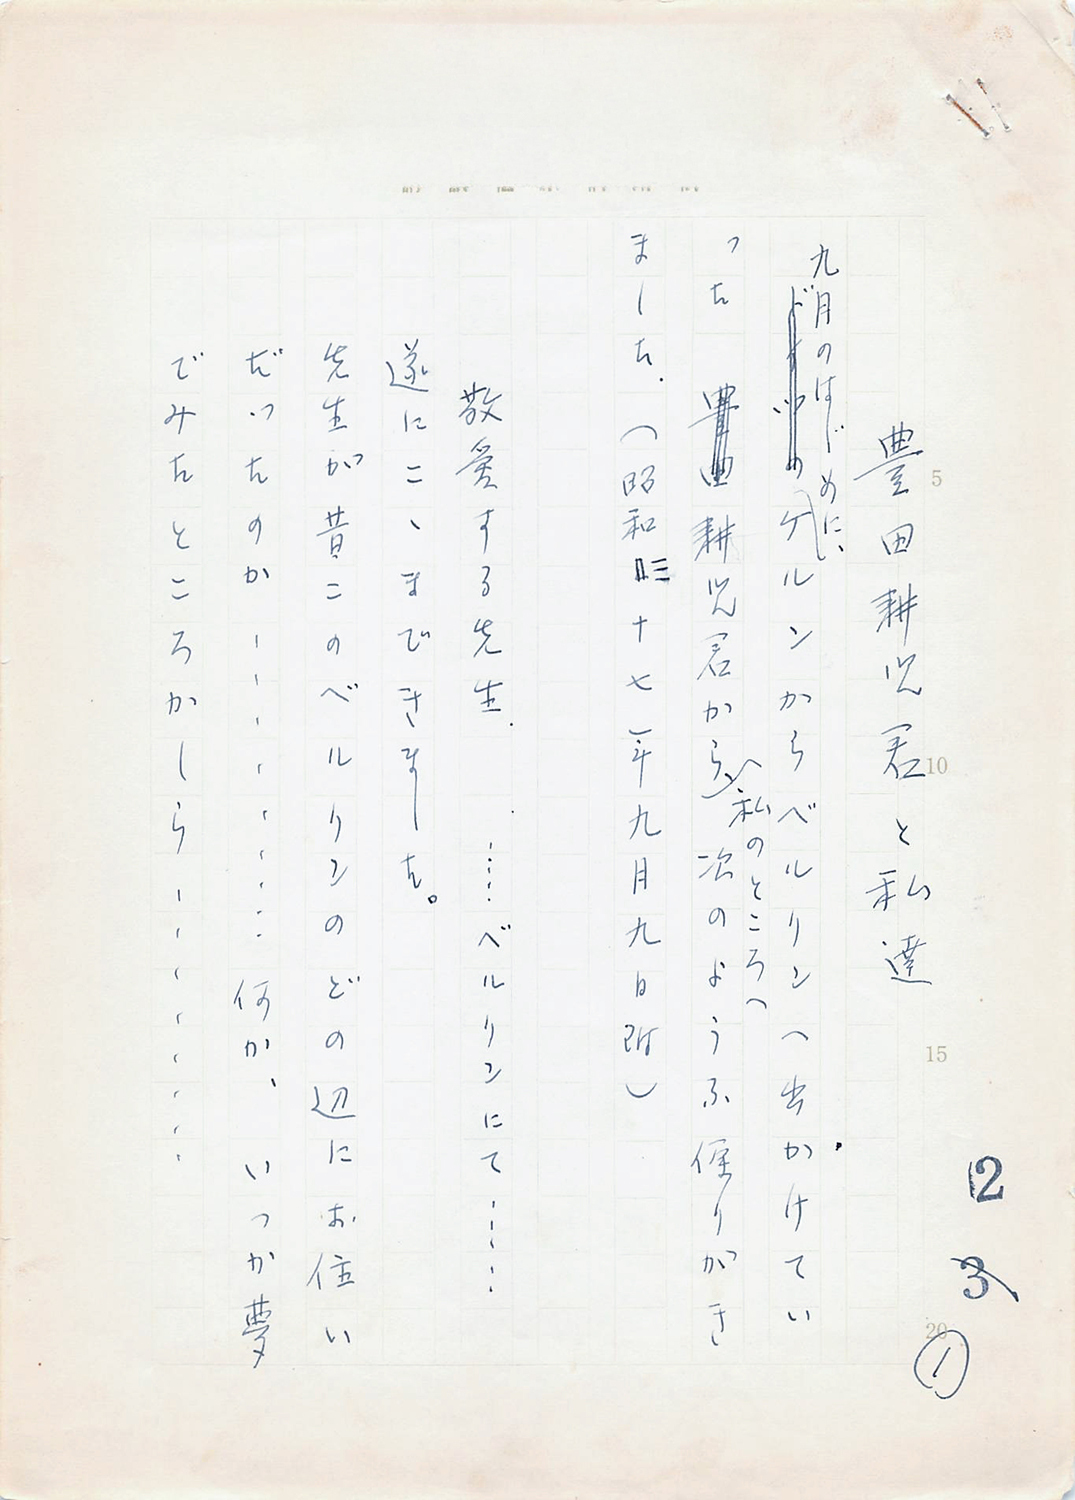 豊田耕児君と私達
九月のはじめに、
ドイツのケルンからベルリンへ出かけてい
った豊田耕児君から、私のところへ次のような便りがき
ました。(昭和三十七年九月九日附)
敬愛する先生。……ベルリンにて……
遂にこゝまできました。
先生が昔このベルリンのどの辺にお住い
だったのか…………何か、いつか夢
でみたところかしら…………
5
10
15
20
12
3
1